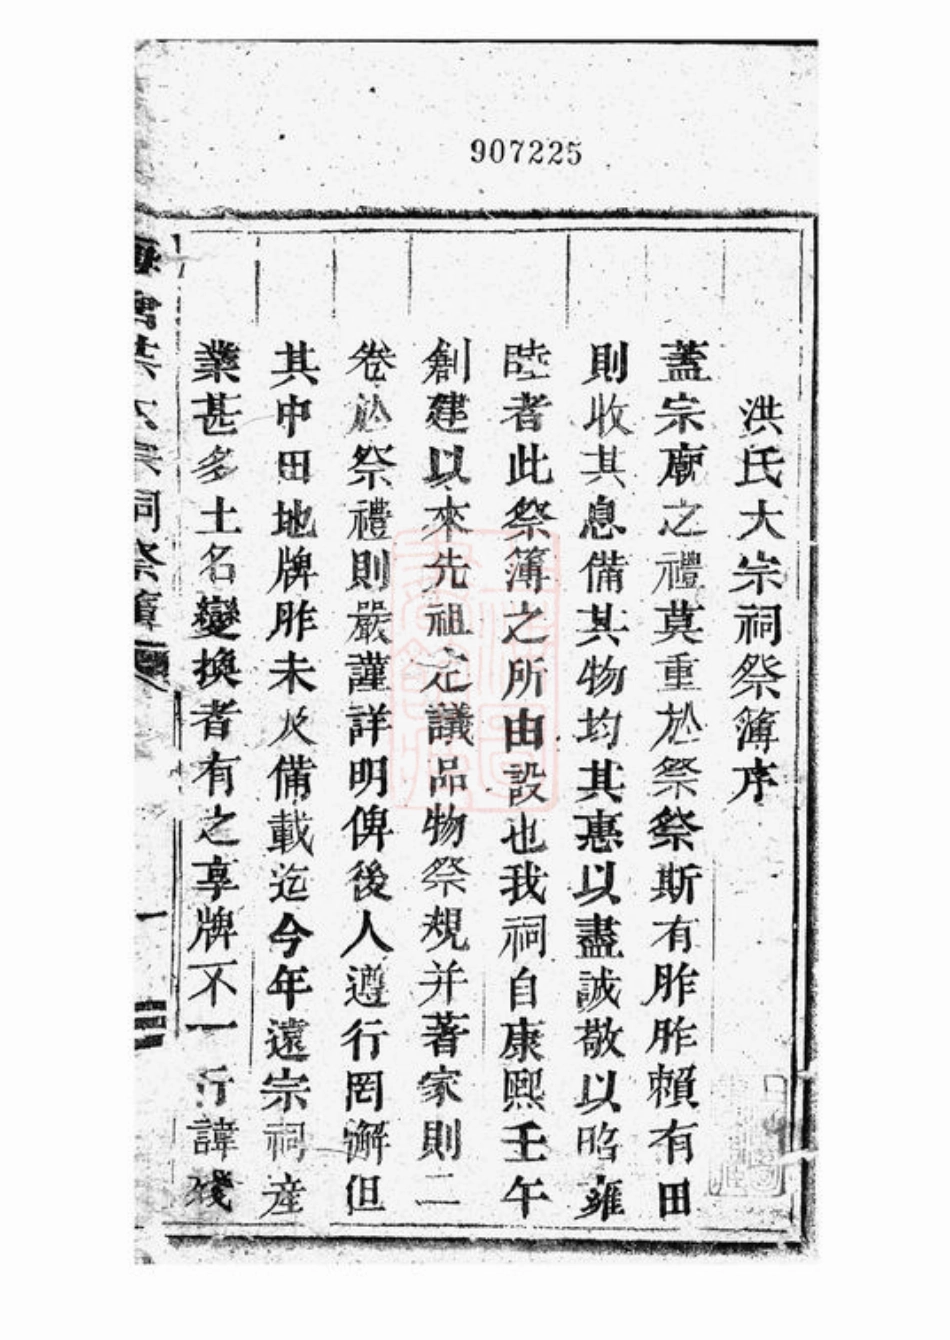 907225
洪氏大宗祠祭簿序
蓋宗廟之禮莫重於祭祭斯有胙胙賴有田
則收其息備其物均其惠以盡誠敬以昭雍
睦者此祭簿之所由設也我祠自康熙壬午
創建以來先祖定議品物祭規并著家則二
卷於祭禮則嚴謹詳明俾後人遵行罔懈但
其中田地牌胙未及備載迄今年遠宗祠產
業甚多土名變換者有之享牌不一行諱殘
洪大宗祠祭簿
一